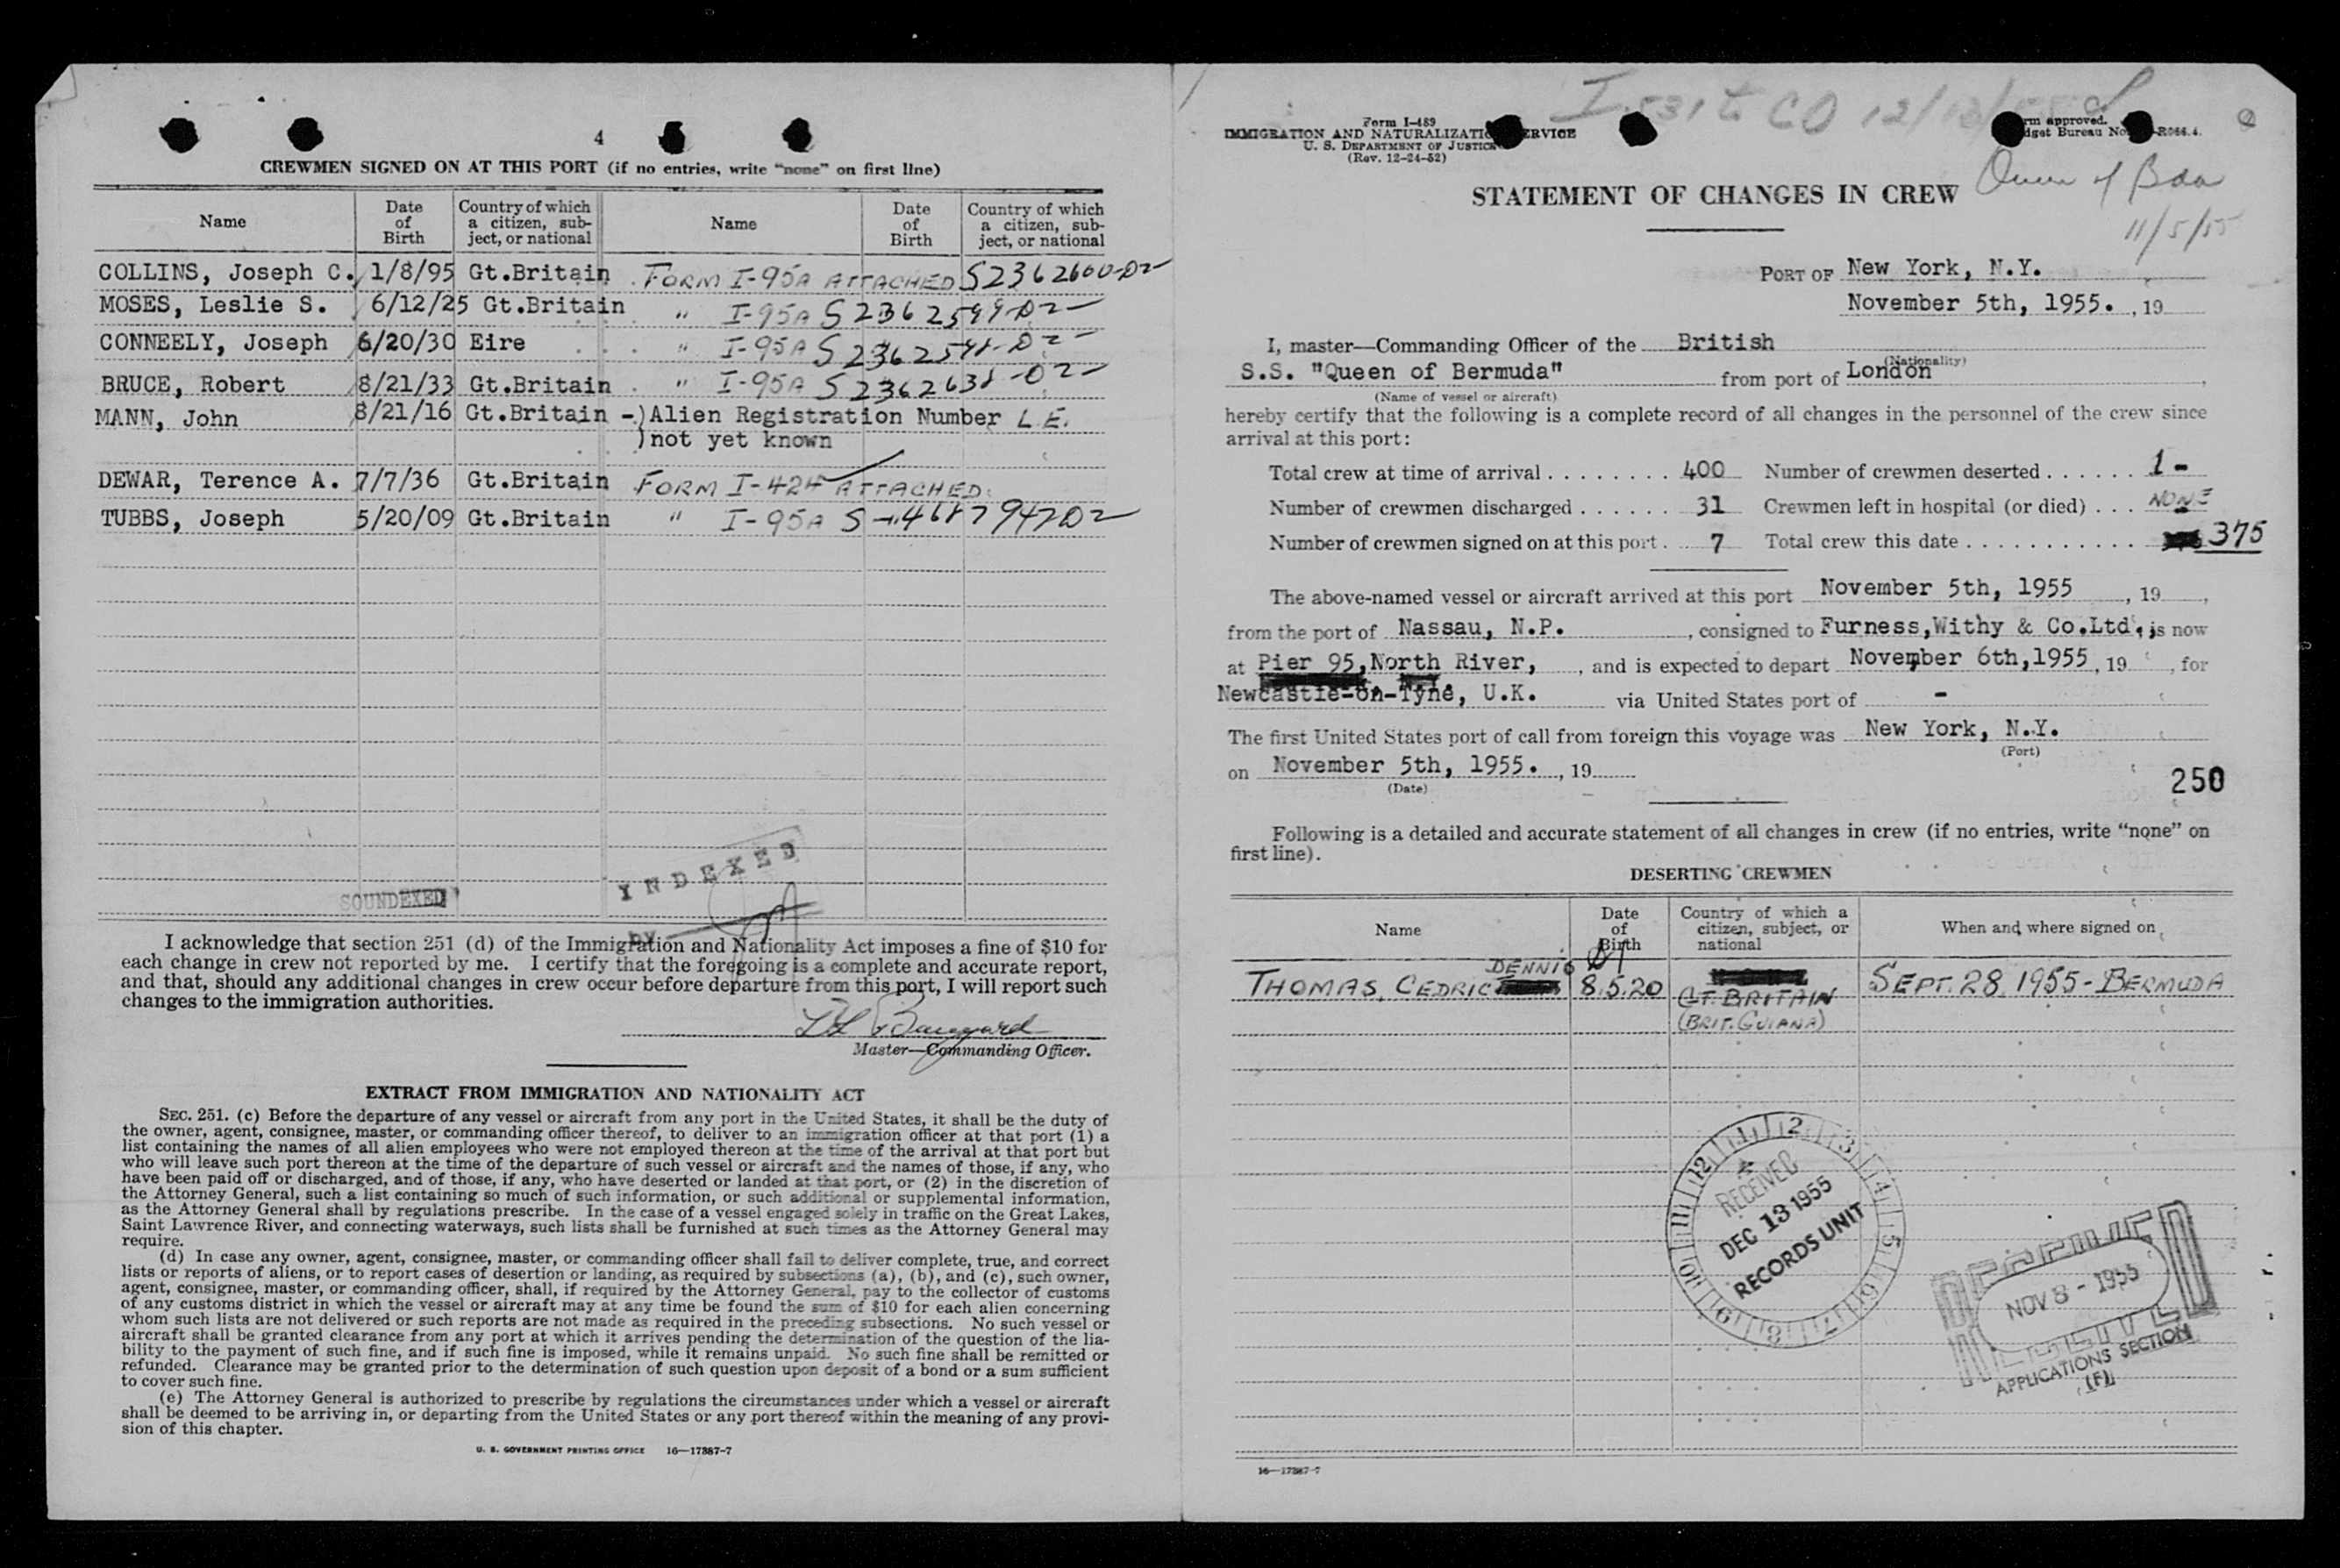 4
CREWMEN SIGNED ON AT THIS PORT (if no entries, write "none" on first line)
Name
Date of Birth
Country of which a citizen, subject, or national
Name
Date of Birth
Country of which a citizen, subject, or national
COLLINS, Joseph C. 1/8/95 Gt.Britain FORM I-95A ATTACHED
MOSES, Leslie S. 6/12/25 Gt.Britain " I-95A
CONNEELY, Joseph 6/20/30 Eire " I-95A
BRUCE, Robert 8/21/33 Gt.Britain " I-95A
MANN, John 8/21/16 Gt.Britain -)Alien Registration Number L.E.
)not yet known
DEWAR, Terence A. 7/7/36 Gt.Britain FORM I-424 ATTACHED.
TUBBS, Joseph 5/20/09 Gt.Britain " I-95A
SOUNDEXED
INDEXED
by
I acknowledge that section 251 (d) of the Immigration and Nationality Act imposes a fine of $10 for
each change in crew not reported by me. I certify that the foregoing is a complete and accurate report,
and that, should any additional changes in crew occur before departure from this port, I will report such
changes to the immigration authorities.
Master—Commanding Officer.
EXTRACT FROM IMMIGRATION AND NATIONALITY ACT
SEC. 251. (c) Before the departure of any vessel or aircraft from any port in the United States, it shall be the duty of
the owner, agent, consignee, master, or commanding officer thereof, to deliver to an immigration officer at that port (1) a
list containing the names of all alien employees who were not employed thereon at the time of the arrival at that port but
who will leave such port thereon at the time of the departure of such vessel or aircraft and the names of those, if any, who
have been paid off or discharged, and of those, if any, who have deserted or landed at that port, or (2) in the discretion of
the Attorney General, such a list containing so much of such information, or such additional or supplemental information,
as the Attorney General shall by regulations prescribe. In the case of a vessel engaged solely in traffic on the Great Lakes,
Saint Lawrence River, and connecting waterways, such lists shall be furnished at such times as the Attorney General may
require.
(d) In case any owner, agent, consignee, master, or commanding officer shall fail to deliver complete, true, and correct
lists or reports of aliens, or to report cases of desertion or landing, as required by subsections (a), (b), and (c), such owner,
agent, consignee, master, or commanding officer, shall, if required by the Attorney General, pay to the collector of customs
of any customs district in which the vessel or aircraft may at any time be found the sum of $10 for each alien concerning
whom such lists are not delivered or such reports are not made as required in the preceding subsections. No such vessel or
aircraft shall be granted clearance from any port at which it arrives pending the determination of the question of the lia-
bility to the payment of such fine, and if such fine is imposed, while it remains unpaid. No such fine shall be remitted or
refunded. Clearance may be granted prior to the determination of such question upon deposit of a bond or a sum sufficient
to cover such fine.
(e) The Attorney General is authorized to prescribe by regulations the circumstances under which a vessel or aircraft
shall be deemed to be arriving in, or departing from the United States or any port thereof within the meaning of any provi-
sion of this chapter.
U. S. GOVERNMENT PRINTING OFFICE 16—17887-7
Form I-489
IMMIGRATION AND NATURALIZATION SERVICE
U. S. DEPARTMENT OF JUSTICE
(Rev. 12-24-52)
approved.
Bureau No. R066.4.
Queen of Bda
11/5/55
STATEMENT OF CHANGES IN CREW
PORT OF New York, N.Y.
November 5th, 1955. , 19
I, master—Commanding Officer of the British
(Nationality)
S.S. "Queen of Bermuda" from port of London
(Name of vessel or aircraft)
hereby certify that the following is a complete record of all changes in the personnel of the crew since
arrival at this port:
Total crew at time of arrival . . . . . . . . 400 Number of crewmen deserted . . . . . . 1 -
Number of crewmen discharged . . . . . . 31 Crewmen left in hospital (or died) . . . NONE
Number of crewmen signed on at this port . 7 Total crew this date . . . . . . . . . . . . 375
The above-named vessel or aircraft arrived at this port November 5th, 1955 , 19 ,
from the port of Nassau, N.P. , consigned to Furness,Withy & Co.Ltd, is now
at Pier 95,North River, , and is expected to depart November 6th,1955 , 19 , for
Newcastle-on-Tyne, U.K. via United States port of -
The first United States port of call from foreign this voyage was New York, N.Y.
(Port)
on November 5th, 1955. , 19
(Date)
250
Following is a detailed and accurate statement of all changes in crew (if no entries, write "none" on
first line).
DESERTING CREWMEN
Name
Date of Birth
Country of which a citizen, subject, or national
When and where signed on
THOMAS, CEDRIC DENNIS 8.5.20 GT. BRITAIN SEPT. 28. 1955 - BERMUDA
(BRIT. GUIANA)
1 2 3 4 5 6 7 8 9 10 11 12
RECEIVED
DEC 13 1955
RECORDS UNIT
RECEIVED
NOV 8 - 1955
APPLICATIONS SECTION
(F)
16—17887-7